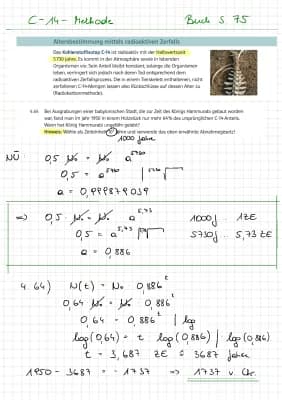 C-14-Methode Buch S. 75
Altersbestimmung mittels radioaktiven Zerfalls
Das Kohlenstoffisotop C-14 ist radioaktiv mit der Halbwertszeit
5 730 Jahre. Es kommt in der Atmosphäre sowie in lebenden
Organismen vor. Sein Anteil bleibt konstant, solange die Organismen
leben, verringert sich jedoch nach deren Tod entsprechend dem
radioaktiven Zerfallsprozess. Die in einem Testobjekt enthaltenen, nicht
zerfallenen C-14-Mengen lassen also Rückschlüsse auf dessen Alter zu
(Radiokarbonmethode).
4.64 Bei Ausgrabungen einer babylonischen Stadt, die zur Zeit des Königs Hammurabi gebaut worden
war, fand man im Jahr 1950 in einem Holzstück nur mehr 64% des ursprünglichen C-14-Anteils.
Wann hat König Hammurabi ungefähr gelebt?
Hinweis: Wähle als Zeiteinheit 10³ Jahre und verwende das oben erwähnte Abnahmegesetz!
1000 Jahre
NÜ 0,5 N₀ = N₀ a^5730
0,5 = a^5730 | ^5730√
a = 0,999879039
=> 0,5 · N₀ = N₀ a^5,73 1000j .. 1ZE
0,5 = a^5,73 | ^5,73√ 5730j .. 5,73 ZE
a = 0,886
4.64) N(t) = N₀ 0,886^t
0,64 N₀ = N₀ 0,886^t
0,64 = 0,886^t | log
log(0,64) = t log(0,886) | : log(0,886)
t = 3,687 ZE = 3687 Jahre
1950 - 3687 = -1737 => 1737 v. Chr.